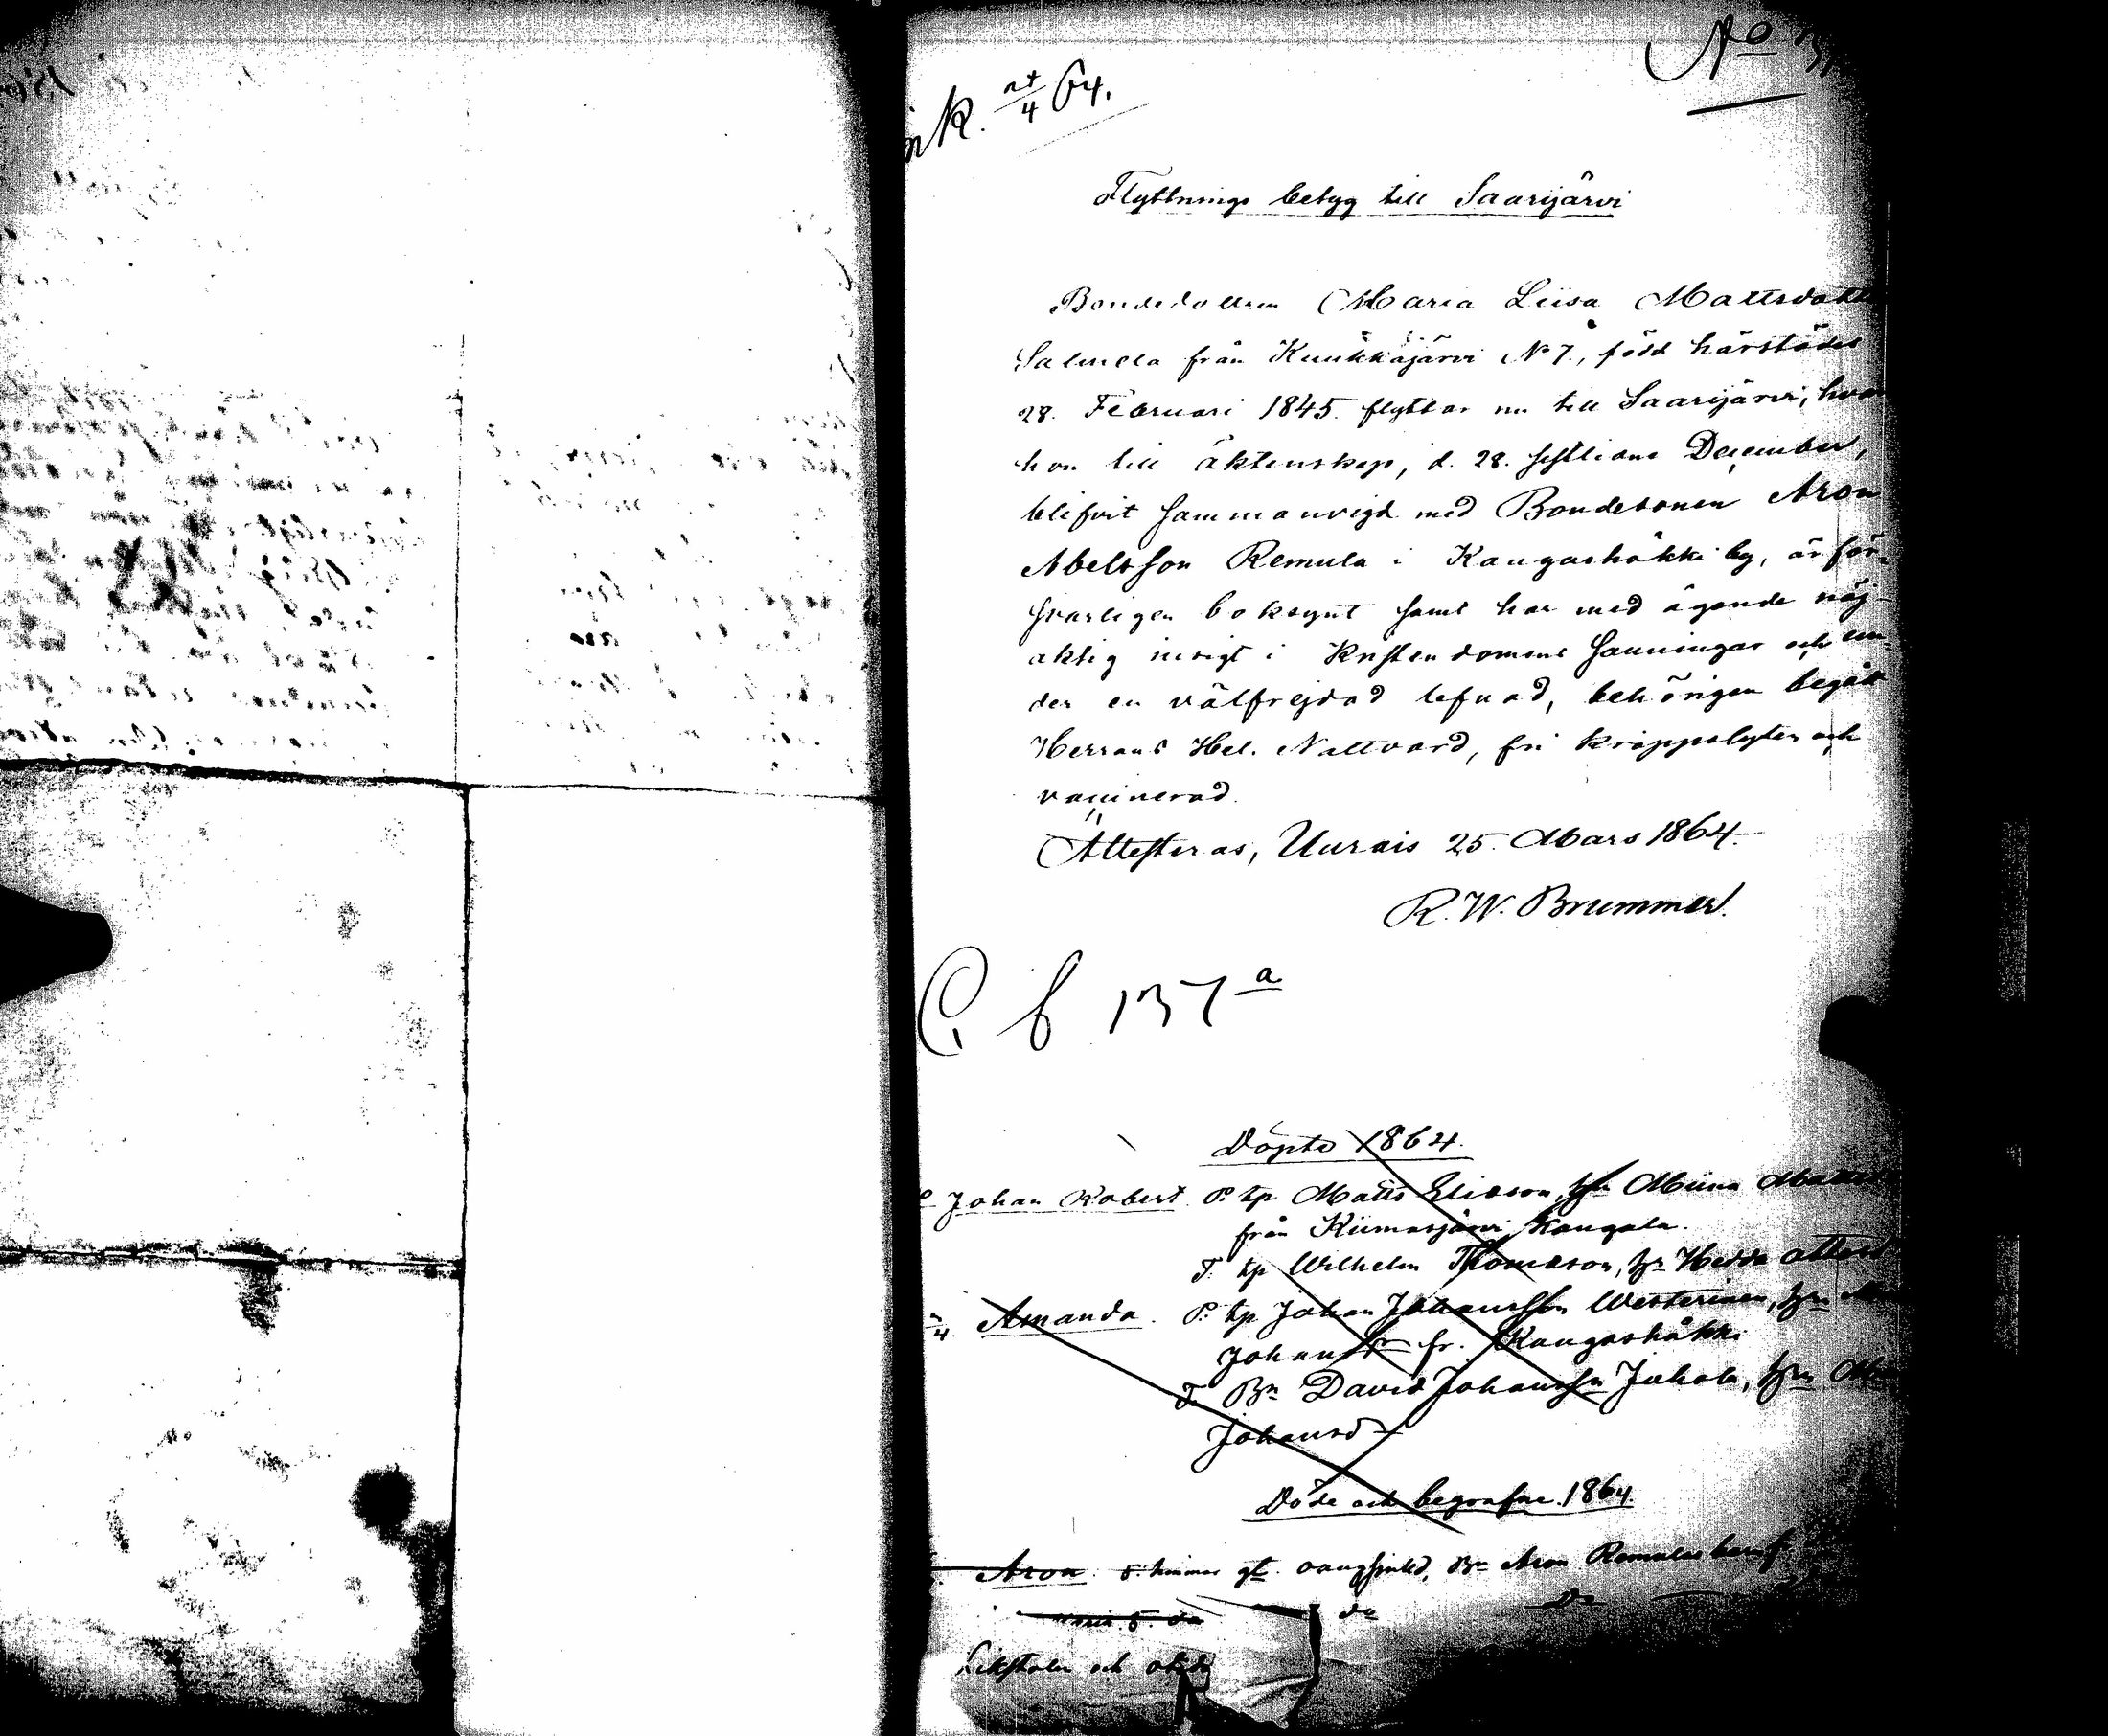 No
ink. 27/4 64.
Flyttnings betyg till Saarijärvi
Bondedottren Maria Liisa Mattsdotter
Salmela från Kuukkajärvi No 7., född härstädes
28. Februari 1845. flyttar nu till Saarijärvi, hvar
hon till äktenskap, d. 28. sistlidne December,
blifvit sammanvigd med Bondesonen Aron
Abelsson Remula i Kangashäkki by, är för-
svarligen boksynt samt har med ägande nöj-
aktig insigt i Kristendomens sanningar och un-
der en välfrejdad lefnad, behörigen begått
Herrans Hel. Nattvard, fri kroppslyten och
vaccinerad.
Attesteras, Uurais 25. Mars 1864.
R. W. Brummer.
C. b 137 a
Döpte 1864.
Johan Robert. P. tp Matts Eliasson, hu Miina
från Kiimasjärvi Kangala.
T. tp Wilhelm Thomasson, hn Hedda
4. Amanda. P. tp Johan Johansson Westerinen, hn
Johansdr fr. Kangashäkki
T. Bn David Johansson Jakola, hn
Johansd
Döde och begrafne 1864.
Aron. 5 timmar gl. Bn Aron Remulas
5. da do Do
och